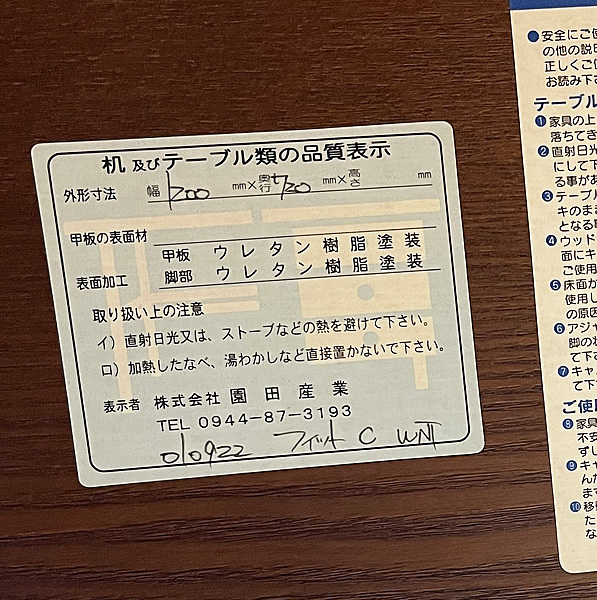 机 及び テーブル類の品質表示
外形寸法 幅 1200 mm×奥行 720 mm×高さ mm
甲板の表面材
表面加工 甲板 ウレタン樹脂塗装
脚部 ウレタン樹脂塗装
取り扱い上の注意
イ）直射日光又は、ストーブなどの熱を避けて下さい。
ロ）加熱したなべ、湯わかしなど直接置かないで下さい。
表示者 株式会社 園田産業
TEL 0944-87-3193
010922 フィット C WNT
●安全にご使
の他の説明
正しくご使
お読み下さ
テーブル
①家具の上
落ちてき
②直射日光
にして下
る事があ
③テーブ
キのまま
となる事
④ウッド
面にキ
ご使用
⑤床面が
使用し
の原因
⑥アジャ
脚の
て下さ
⑦キャ
て下
ご使用
⑧家具
不安
ずし
⑨キャ
んた
ます
⑩移動
た
な